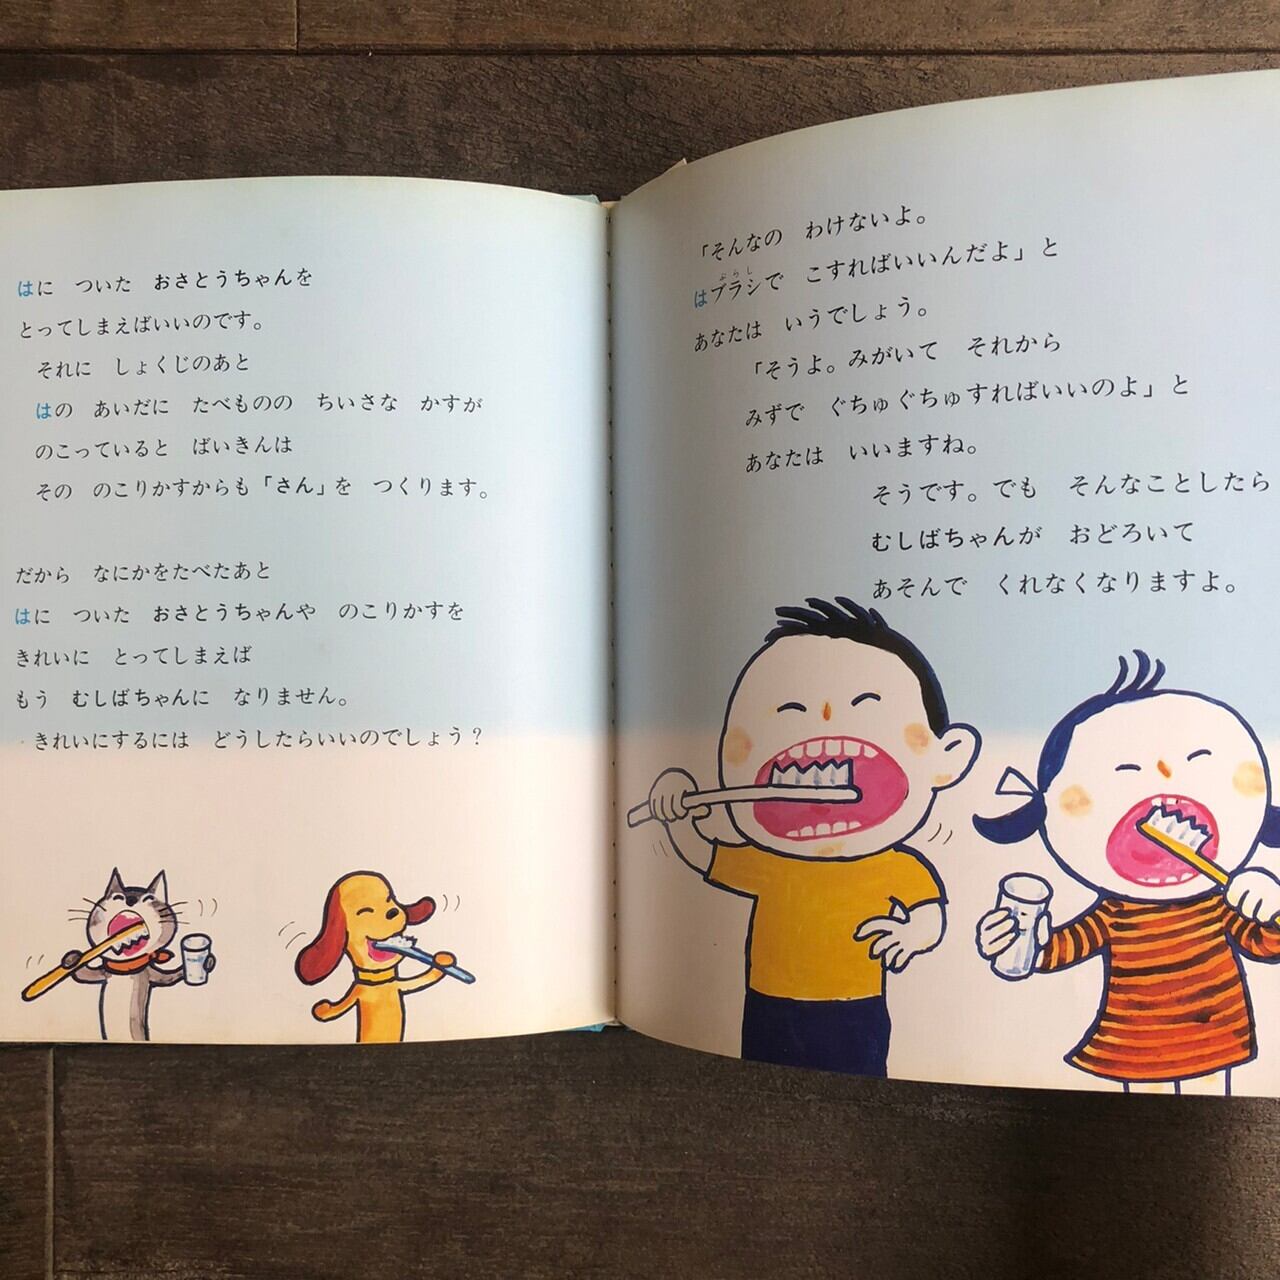 はに　ついた　おさとうちゃんを
とってしまえばいいのです。
それに　しょくじのあと
はの　あいだに　たべものの　ちいさな　かすが
のこっていると　ばいきんは
その　のこりかすからも「さん」を　つくります。
だから　なにかをたべたあと
はに　ついた　おさとうちゃんや　のこりかすを
きれいに　とってしまえば
もう　むしばちゃんに　なりません。
きれいにするには　どうしたらいいのでしょう？
「そんなの　わけないよ。
ぶらし
はブラシで　こすればいいんだよ」と
あなたは　いうでしょう。
「そうよ。みがいて　それから
みずで　ぐちゅぐちゅすればいいのよ」と
あなたは　いいますね。
そうです。でも　そんなことしたら
むしばちゃんが　おどろいて
あそんで　くれなくなりますよ。